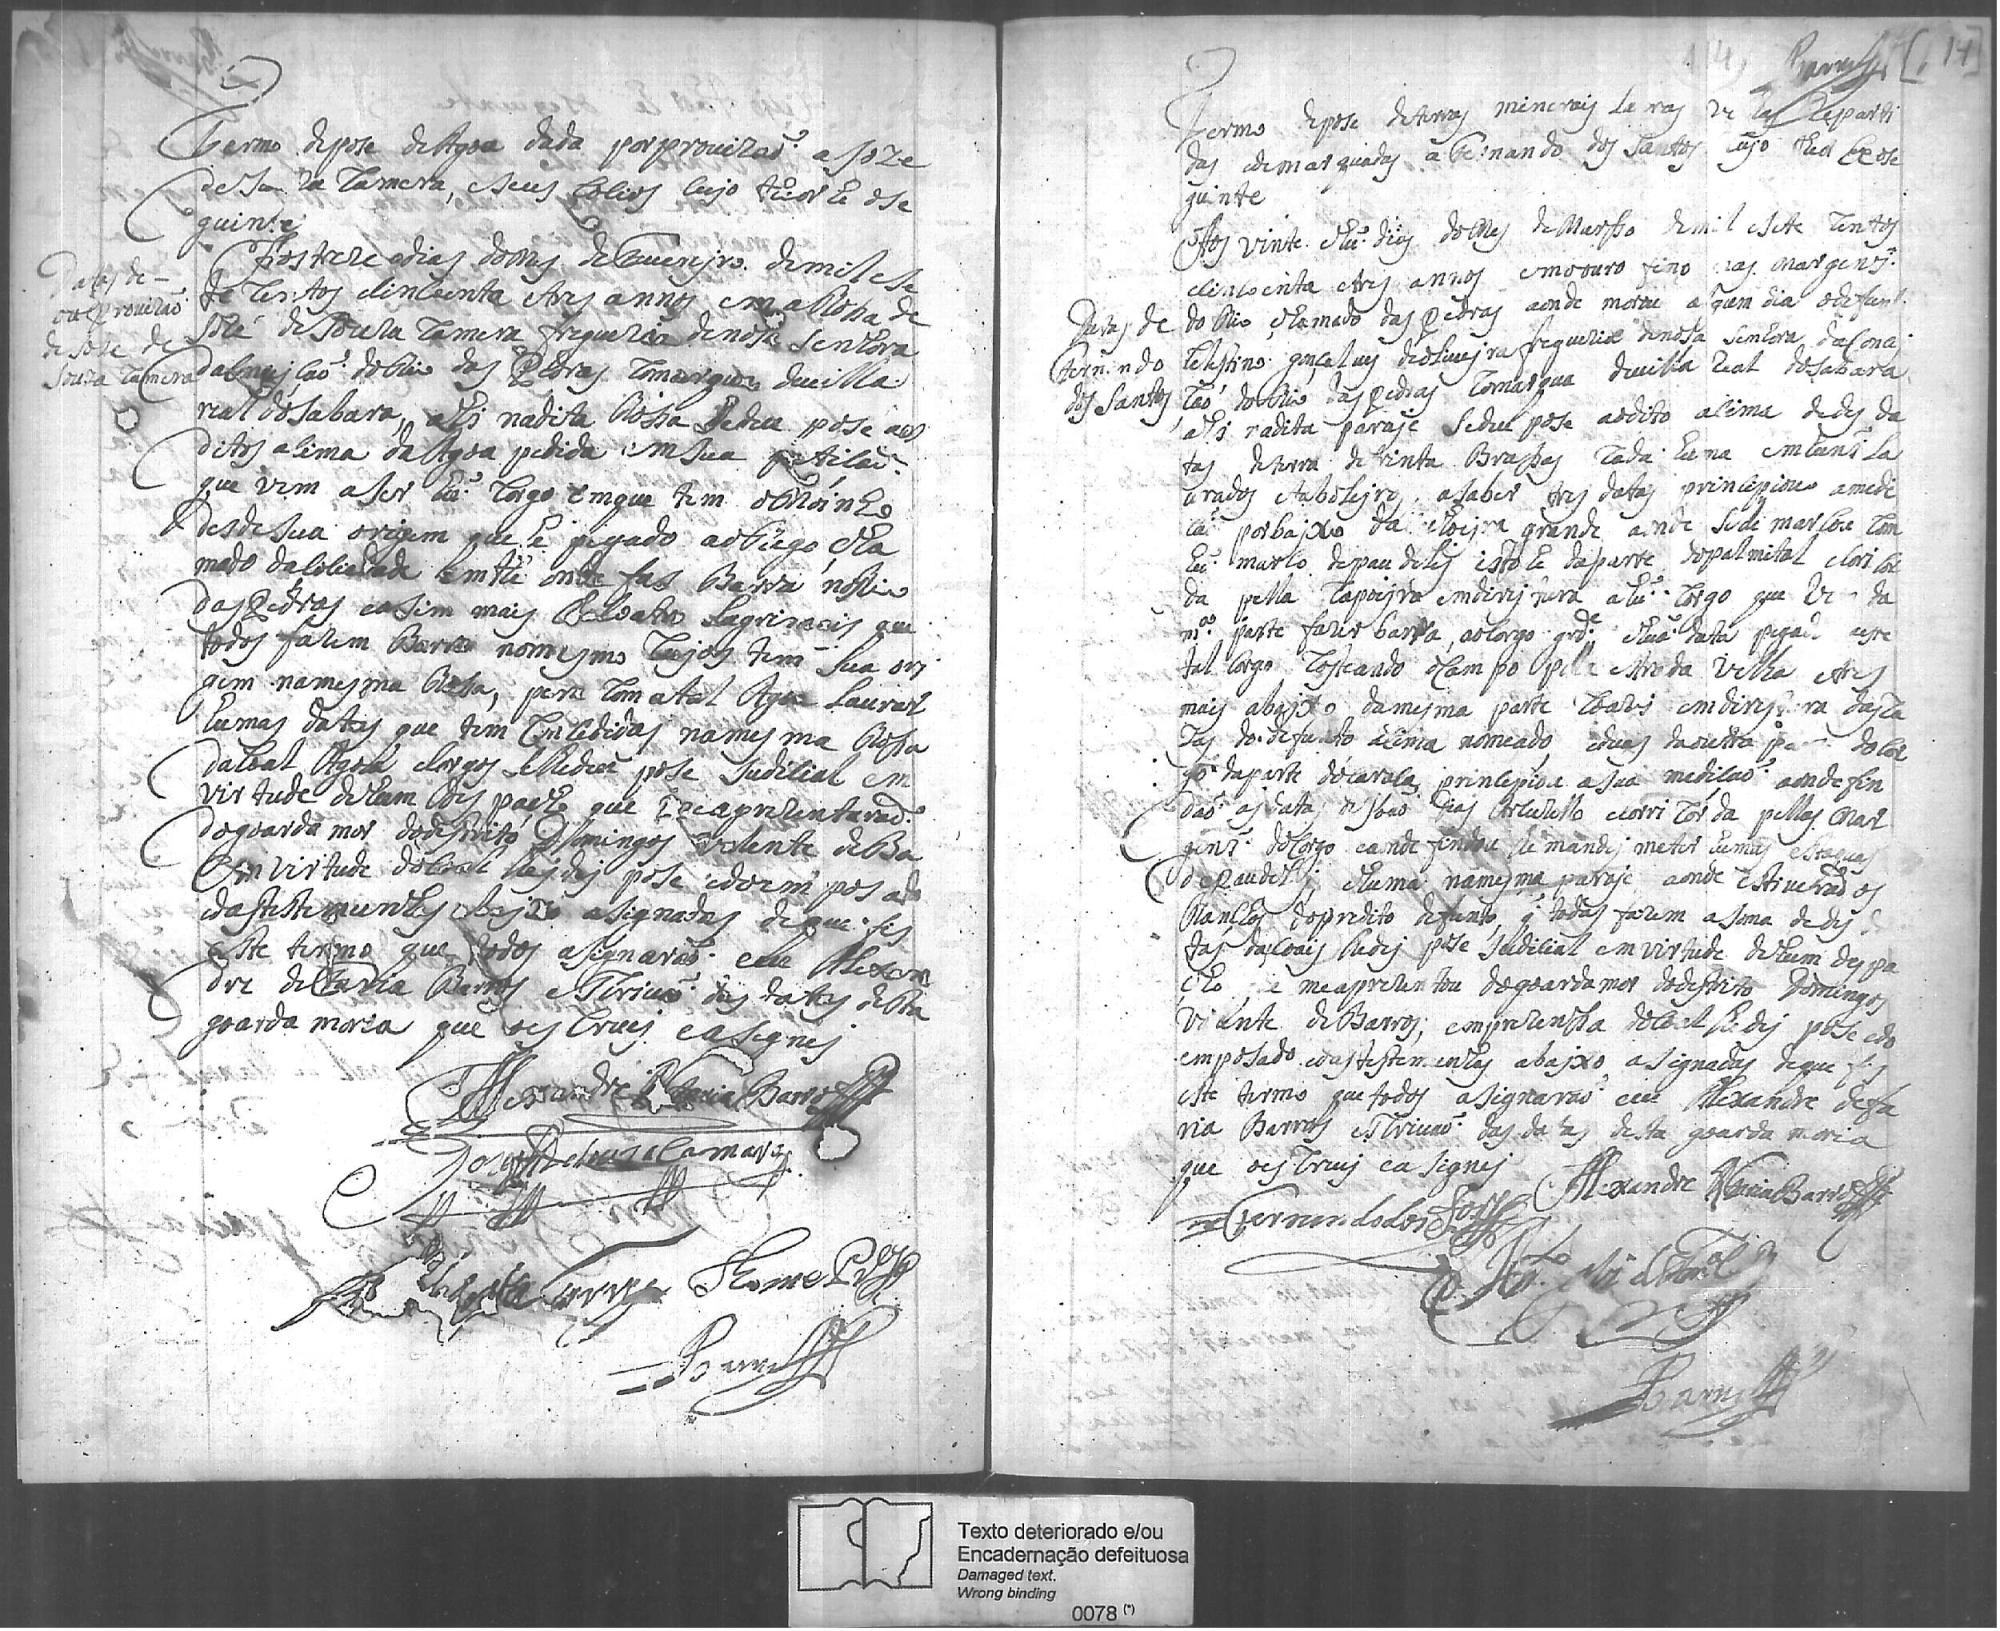 Termo deposse de Agoa dada por provizaõ. a Joze
de Souza Camera, eseus socios cujo theor he ose
guinte
Aos treze edias domes de Fuereyro. demil ese
te centos esincoenta etres annos em a Rossa de
José deSouza Camera freguezia denosa Senhora
da Conceiçaõ doRio das Pedras Comarqua devilla
real doSabara, ahi nadita Rossa sedeu pose aos
ditos asima da Agoa pedida em sua petisaõ
que vem aser hũ Corgo emque tem oRioinho
desdesua origem que hé pegado ao cha
mado daSoledade emthé onde fas Barra noRio
das Pedras easim mais que
todos fazem Barra nomesmo Cujos tem sua ori
gem namesma Rosa, pera Com atal Agoa Laurar
humas datas que tem Consedidas namesma Rossa
daCoal Agoa eCorgos lhedeu pose Judisial em
virtude dehum despacho que meaprezentaraõ
dogoarda mor dodestrito Domingos Valente deBa
em virtude doCoal lhe dej pose edoem posado
edastestemunhas abajxo asignadas deque fes
este termo que todos asignaraõ. eeu Alexan
dre deFaria Barros esCrivaõ das datas desta
goarda moria que oesCrevj easignej
Alexandre de Faria Barros
Joseph de Souza Camara
Thome
Barros
Datas de
ou Provizaõ
de Joze de
Souza Camera
14
Barros
Termo depose deterras minerais Reparti
das edemarquadas a Fernando dos Santos cujo theor he ose
guinte
Aos vinte ehũ dias domes deMarsso demil esete centos
esincoenta etres annos emoouro fino nas margens
doRio chamado das Pedras aonde morou algum dia odefunto
Celestino gonçalves deoliuejra freguezia denosa senhora daConsej
çaõ doRio das pedras Comarqua devilla real doSabara
ahi nadita paraje sedeu pose aodito asima dedes da
tas deterra detrinta Brassas Cada huma
etaboleyros asaber tres datas prinsepiou amedi
çaõ porbajxo da grande aonde sedemarcou Com
hũ marco depau deLej isto he daparte dopalmital eCori Cor
da pella Capoejra emdirejtura ahũ Corgo que vem da
mma parte fazer barra, aoCorgo grde ehuã data pegada aeste
tal Corgo Costeando oCampo pella estrada velha etres
mais abajxo damesma parte emdirejtura dasCa
zas do defunto asima nomeado, eduas daoutra parte doCor
go daparte prinsepiou asua medisaõ aonde fin
daõ as datas de Joaõ Dias eCorri Corda pellas mar
gens doCorgo eaonde findou lhe mandej meter humas estaquas
depaudeLej ehuma namesma paraje aonde estiueraõ os
Ranchos dopredito defunto, q todas fazem a soma de des da
tas dasCoais lhedej pose Judisial emvirtude dehum despa
cho q meaprezentou dogoardamor dodestrito Domingos
Valente deBarros, emprezensa doCoal lhedej pose edo
emposado edastestemunhas abajxo asignadas deque fis
este termo quetodos asignaraõ eeu Alexandre defa
ria Barros esCrivaõ das datas desta goarda moria
que oesCrevj easignej
Alexandre de Faria Barros
Fernando dos Santos
Barros
Datas de
Fernando
dos Santos
Texto deteriorado e/ou
Encadernação defeituosa
Damaged text.
Wrong binding
0078 (*)